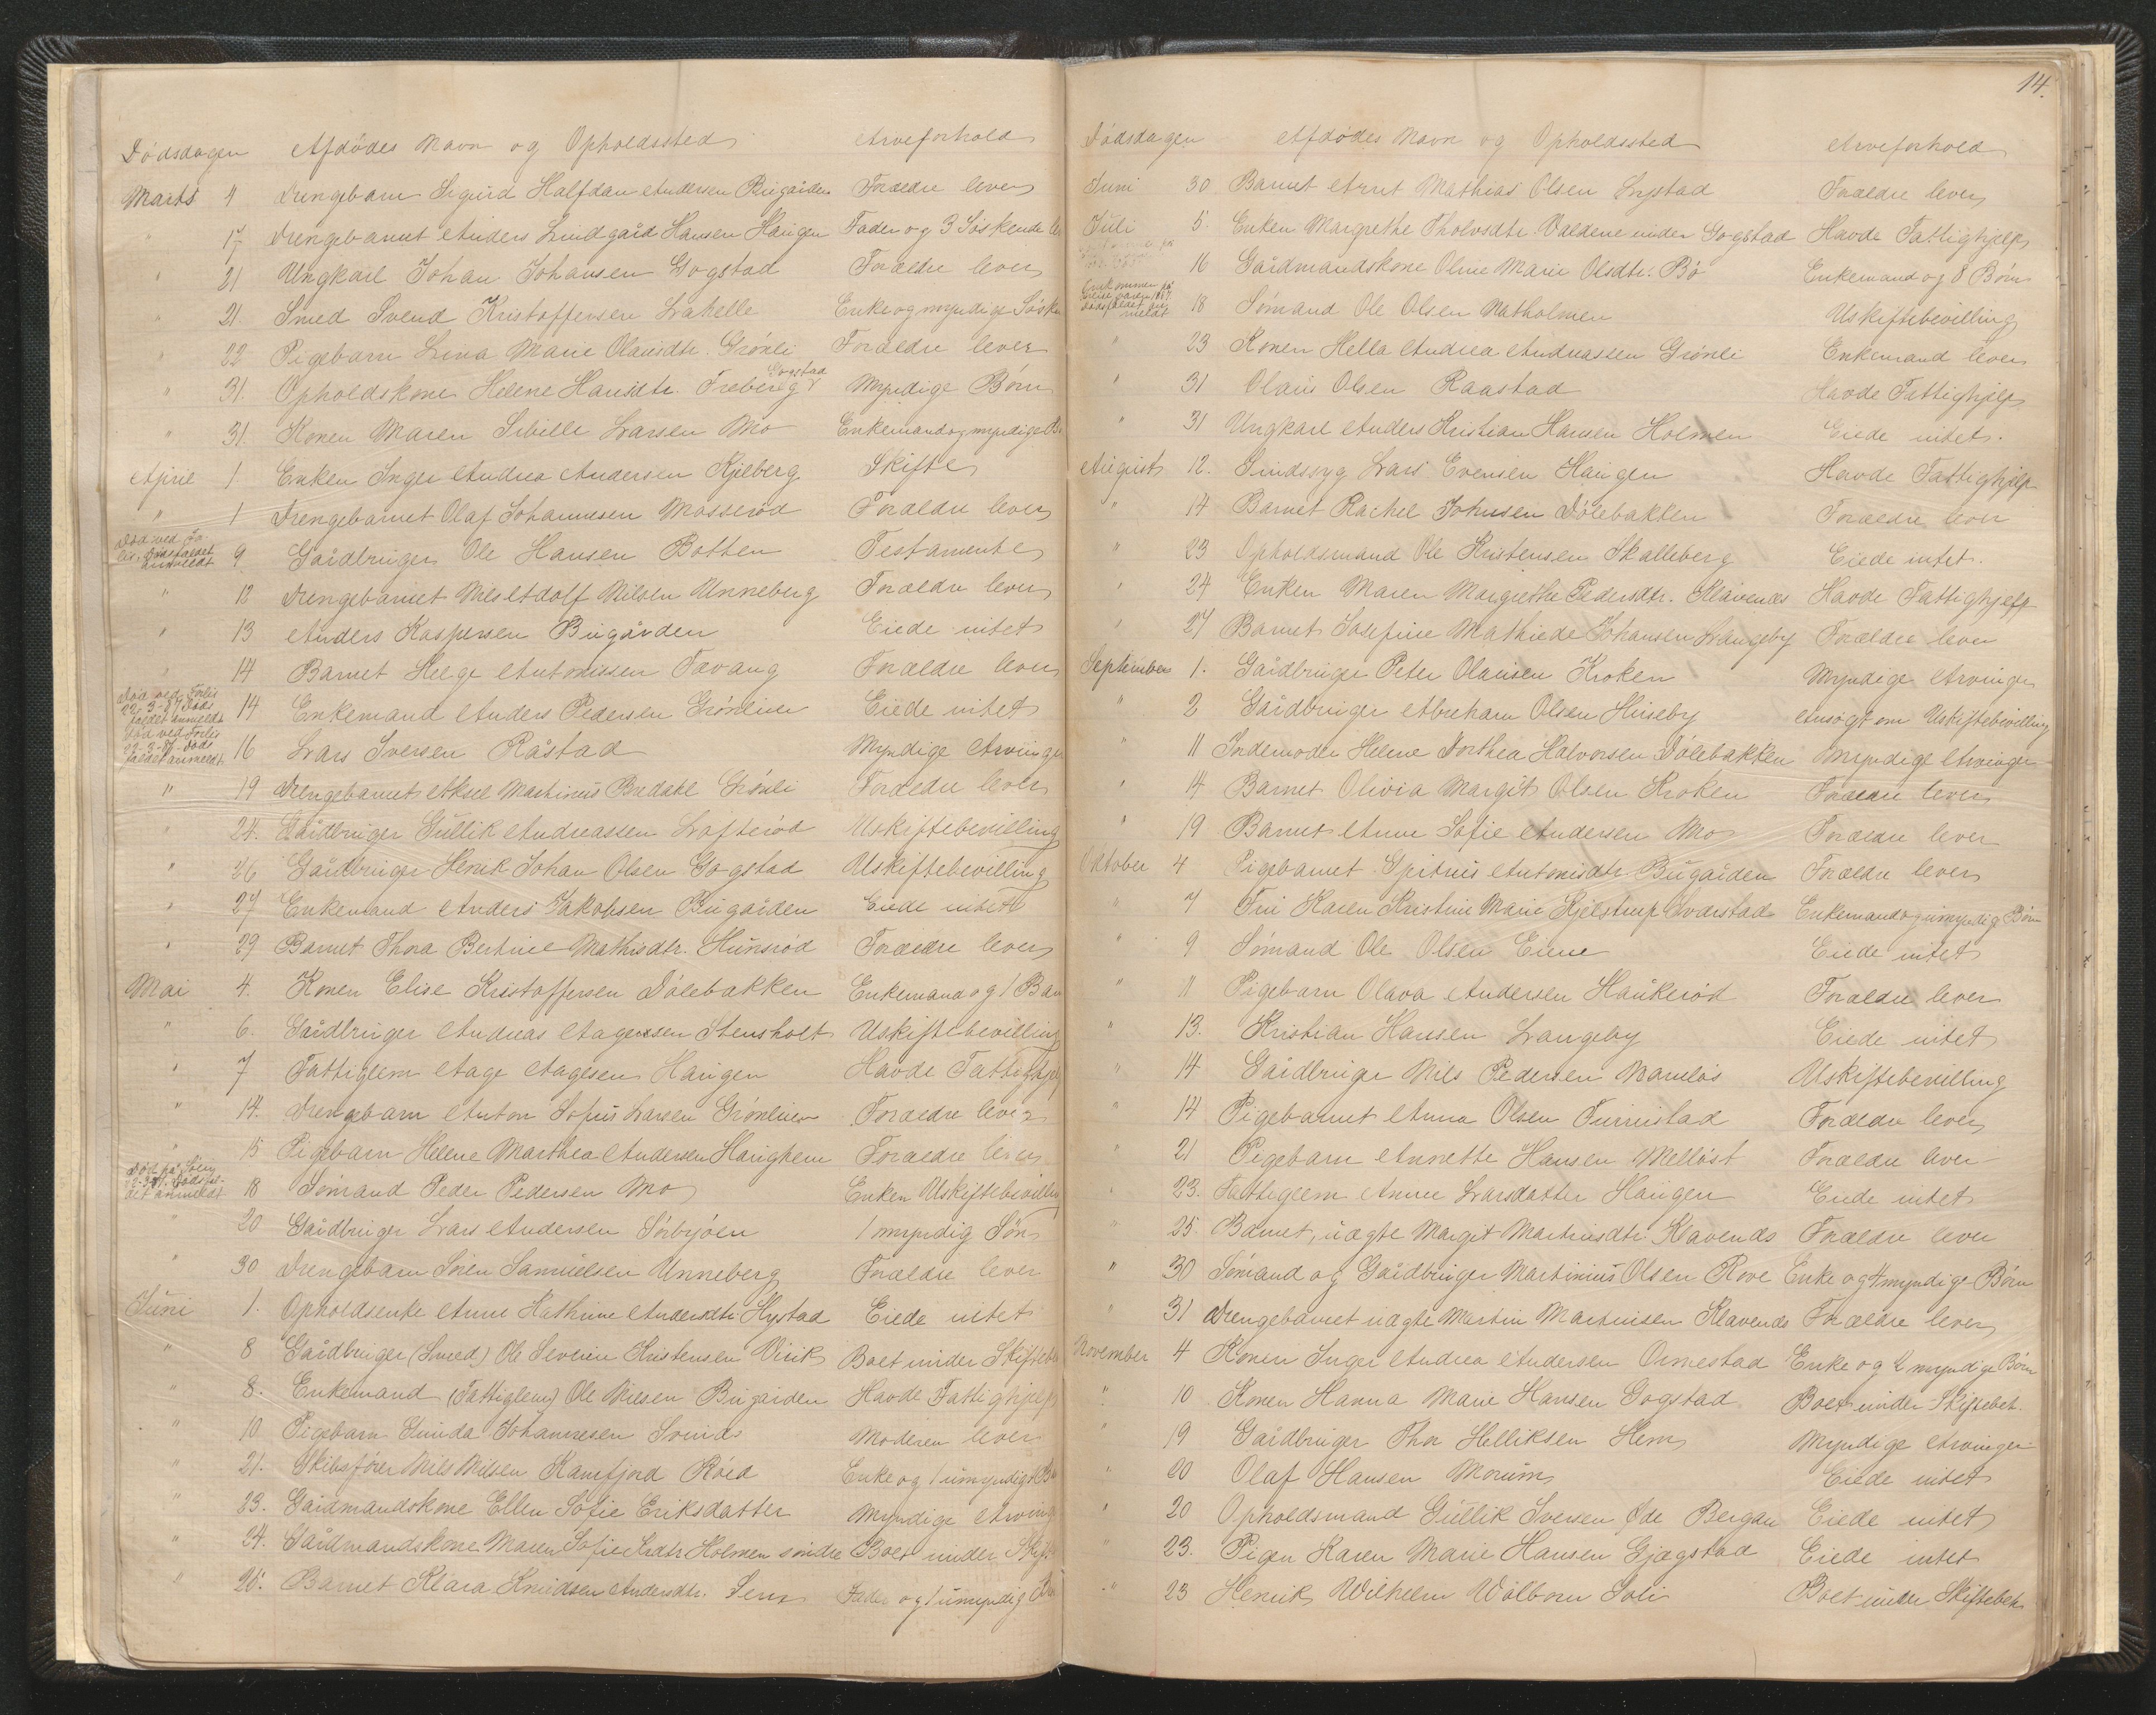 14.
Dødsdagen Afdødes Navn og Opholdssted Arveforhold
Marts 4 Drengebarn Sigurd Halfdan Andersen Bugården Forældre lever
" 17 Drengebarnet Anders Lindgård Hansen Haugen Fader og 3 Søskende
" 21 Ungkarl Johan Johansen Gogstad Forældre lever
" 21. Smed Svend Kristoffersen Lahelle Enke og myndige
" 22 Pigebarn Lina Marie Olausdtr. Grønli Forældre lever
Gogstad
" 31. Opholdskone Helene Hansdtr. Freberg Myndige Børn
" 31. Konen Maren Sibille Larsen Mo Enkemand og myndige
April 1. Enken Inger Andrea Andersen Kjelberg Skifte
" 1 Drengebarnet Olaf Johannesen Mosserød Forældre lever
Død ved
lis. Dødsfaldet
anmeldt 9 Gårdbruger Ole Hansen Botten Testamente
" 12 Drengebarnet Nils Adolf Nilsen Unneberg Forældre lever
" 13 Anders Kaspersen Bugården Eiede intet
" 14 Barnet Helge Antonissen Tavang Forældre lever
Død ved Forlis
22-3-87. Døds
faldet anmeldt 14 Enkemand Anders Pedersen Grønlien Eiede intet
Død ved Forlis
22-3-87. Døds
faldet anmeldt. 16 Lars Iversen Råstad Myndige
" 19 Drengebarnet Aksel Martinius Bredahl Grønli Forældre lever
" 24. Gårdbruger Gullik Andreassen Lofterød Uskiftebevilling
" 26 Gårdbruger Henrik Johan Olsen Gogstad Uskiftebevilling
" 27 Enkemand Anders Jakobsen Bugården Eiede intet
" 29 Barnet Thora Bertine Mathisdtr. Hunsrød Forældre lever
Mai 4. Konen Elise Kristoffersen Dølebakken Enkemand og 1
" 6. Gårdbruger Andreas Agersen Stensholt Uskiftebevilling
" 7 Fattiglem Aage Aagesen Haugen Havde
" 14. Drengebarn Anton Sofus Larsen Grønlien Forældre lever
" 15 Pigebarn Helene Marthea Andersen Haughem Forældre lever
22-3-87. Dødsfal-
det anmeldt 18 Sømand Peder Pedersen Mo Enken
" 20 Gårdbruger Lars Andersen Sørbyøen 1 myndig Søn
" 30 Drengebarn Sören Samuelsen Unneberg Forældre lever
Juni 1. Opholdsenke Anne Kathrine Andersdtr. Hystad Eiede intet
" 8 Gårdbruger (Smed) Ole Severin Kristensen Virik Boet under
" 8. Enkemand (Fattiglem) Ole Nilsen Bugården Havde Fattighjelp
" 10 Pigebarn Johannesen Moderen lever
" 21. Skibsfører Nils Nilsen Kamfjord Röed Enke og 1 umyndigt
" 23. Gårdmandskone Ellen Sofie Eriksdatter Myndige
" 24. Gårdmandskone Maren Sofie Holmen søndre Boet under
" 26. Barnet Klara Knudsen Andersdtr. Fader og 1 umyndig
Dødsdagen Afdødes Navn og Opholdssted Arveforhold
Juni 30 Barnet Arnt Mathias Olsen Lystad Forældre lever
Juli 5. Enken Margrethe Tholvsdtr. Valdene under Gogstad Havde Fattighjelp
" 16 Gårdmandskone Oline Marie Olsdtr. Bø Enkemand og 8 Børn
Omkommen på
meldt 18 Sømand Ole Olsen Natholmen Uskiftebevilling
" 23 Konen Hella Andrea Andreassen Grønli Enkemand lever
" 31 Olaus Olsen Raastad Havde Fattighjelp
" 31 Ungkarl Anders Kristian Hansen Holmen Eiede intet.
August 12. Sindssyg Lars Evensen Haugen Havde Fattighjelp
" 14 Barnet Rachel Johnsen Dölebakken Forældre lever
" 23 Opholdsmand Ole Kristensen Skalleberg Eiede intet.
" 24 Enken Maren Margrethe Pedersdtr. Klavenes Havde Fattighjelp
" 27 Barnet Josefine Mathilde Johansen Langeby Forældre lever
September 1. Gårdbruger Peter Olausen Kroken Myndige Arvinger
" 2 Gårdbruger Abraham Olsen Huseby Ansøgt om Uskiftebevilling
" 11 Indemoder Helene Dorthea Halvorsen Dölebakken Myndige Arvinger
" 14 Barnet Olivia Margit Olsen Kroken Forældre lever
" 19 Barnet Anne Sofie Andersen Mo Forældre lever
Oktober 4 Pigebarnet Antonisdtr. Bugården Forældre lever
" 7 Fru Karen Kristine Marie Kjelstrup Enkemand og umyndige Børn
" 9 Sømand Ole Olsen Eiede intet
" 11 Pigebarn Olava Andersen Haukerød Forældre lever
" 13. Kristian Hansen Langeby Eiede intet
" 14 Gårdbruger Nils Pedersen Marnløs Uskiftebevilling
" 14 Pigebarnet Anna Olsen Furustad Forældre lever
" 21 Pigebarn Annette Hansen Melløst Forældre lever
" 23. Fattiglem Anne Larsdatter Haugen Eiede intet
" 25. Barnet, uægte Margit Martinsdtr. Klavenæs Forældre lever
" 30 Sømand og Gårdbruger Martinius Olsen Rove Enke og 4 myndige Børn
" 31 Drengebarnet uægte Martin Martinsen Klavenes Forældre lever
November 4 Konen Inger Andrea Andersen Ormestad Enke og 2 myndige Børn
" 10 Konen Hanna Marie Hansen Gogstad Boet under Skiftebeh.
" 19 Gårdbruger Thor Helliksen Hem Myndige Arvinger
" 20 Olaf Hansen Morum Eiede intet
" 20 Opholdsmand Gullik Iversen Øde Bergan Eiede intet
" 23. Pigen Karen Marie Hansen Gjøgstad Eiede intet
" 23 Henrik Wilhelm Wølbom Soli Boet under Skiftebeh